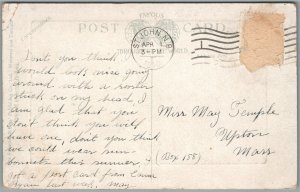 FAMOUS
POST CARD
THROUGHOUT THE WORLD
ST. JOHN, N.B.
APR
5 PM
Dont you think I
would look nice going
around with a rooster
stuck on my head, I
am glad that you
dont think you will
have one, don't you think
we could wear sun-
bonnets this summer. I
got a post card from Emma
Ryan last wed, May.
Miss May Temple
Upton
(Box 155)
Mass